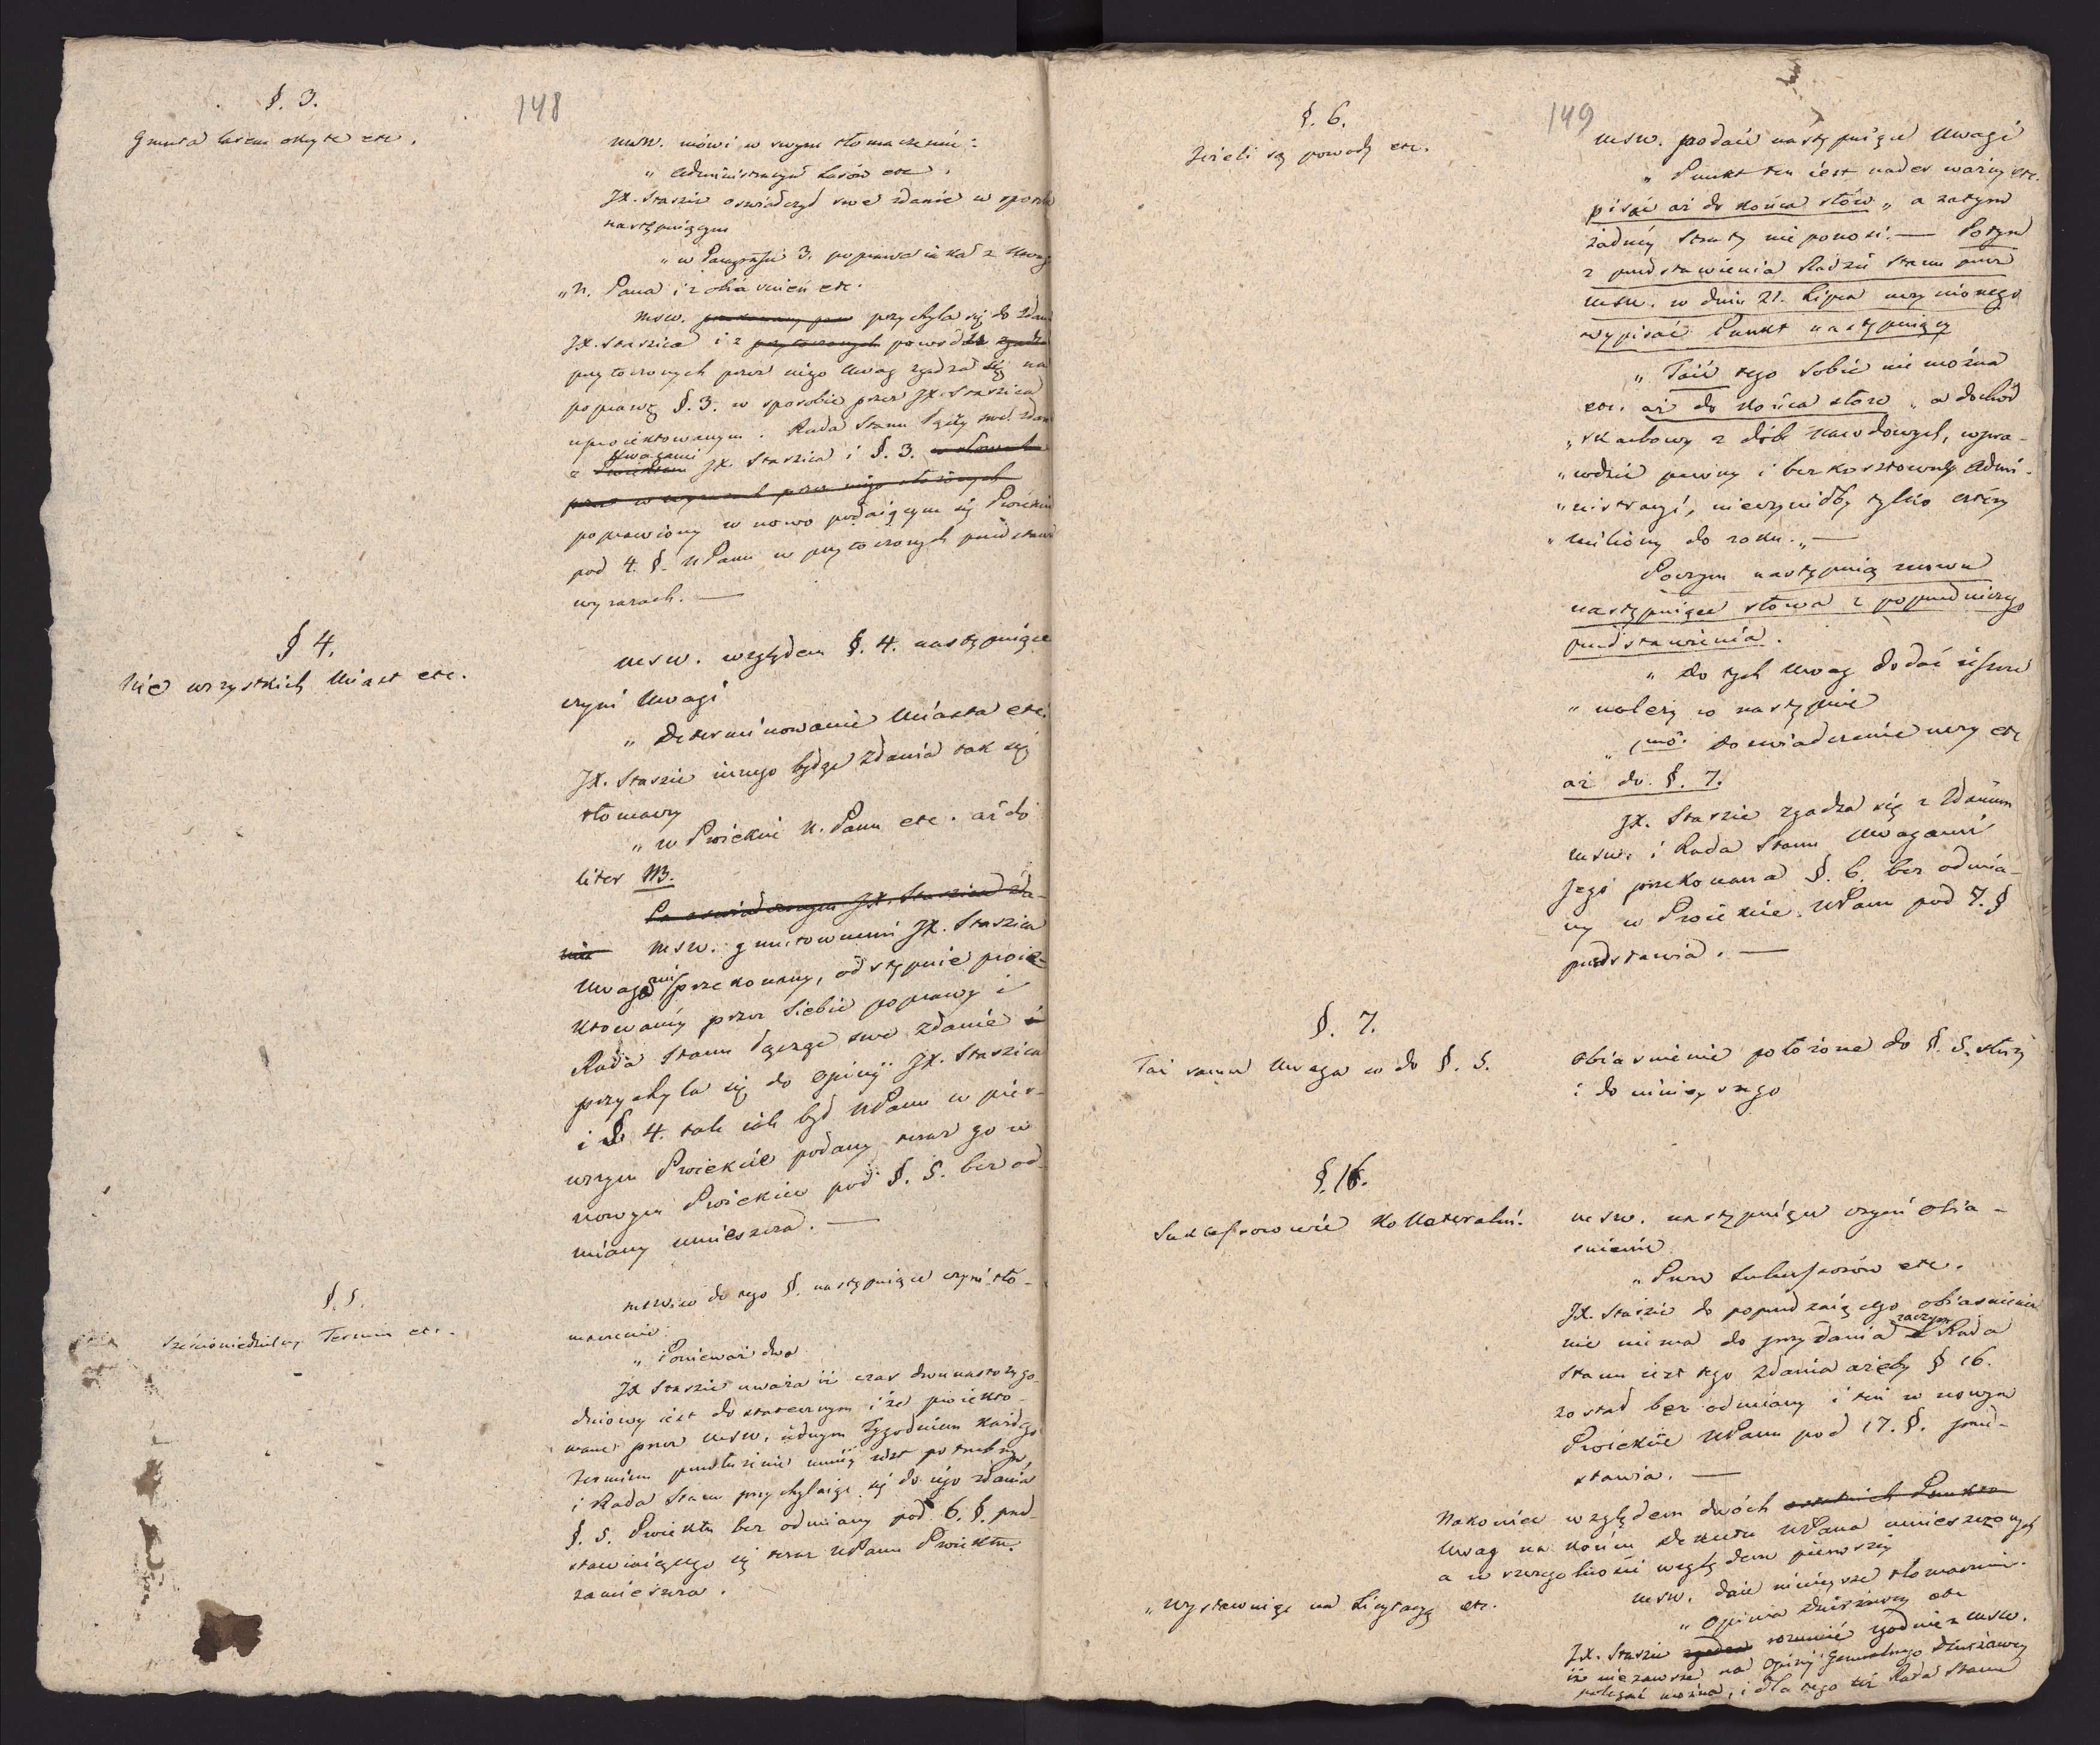 148
§. 3.
Grunta lasem okryte etc.
MSW. mówi w swym tłomaczeniu:
„ Administracya Lasów etc.
JX. Staszic oświadczył swe zdanie w sposób
następuiącym
„ w Paragrafie 3. poprawa iaka z Uwag
„ N. Pana i z obiaśnień etc.
MSW. przychyla się do zdan
JX. Staszica i z przytoczonych powodów zgadza
przytoczonych przez niego Uwag zgadza się na
poprawę §. 3. w sposobie przez JX. Staszica
uproiektowanym. Rada Stanu łączy swe zdan
z Uwagami JX. Staszica i §. 3. w słowach
przez w wyrazach przez niego ułożonych
poprawiony w nowo podaiącym się Proiekcie
pod 4. §. NPanu w przytoczonych przedstawia
wyrazach. —
§ 4.
Nie wszystkich Miast etc.
MSW. względem §. 4. następuiące
czyni Uwagi
„ Determinowanie Miasta etc.
JX. Staszic innego będąc zdania tak się
tłomaczy
„ w Proiekcie N. Panu etc. aż do
liter NB.
Po oświadczonym JX. Staszica zda-
niu MSW. gruntownemi JX. Staszica
Uwagami przekonany, odstępuie proie-
ktowaney przez Siebie poprawy i
Rada Stanu łącząc swe zdanie i
przychyla się do Opinij JX. Staszica
i §. 4. tak iak był NPanu w pier-
wszym Proiekcie podany teraz go w
nowym Proiekcie pod §. 5. bez od-
miany umieszcza. —
§. 5.
Sześcioniedzielny Termin etc.
MSW. co do tego §. następuiące czyni tło-
maczenie
„ Ponieważ dwa
JX Staszic uważa iż czas dwunastotygo-
dniowy iest dostatecznym i że proiekto-
wane przez MSW. iednym Tygodniem każdego
Terminu przedłużenie mniey iest potrzebnym,
i Rada Stanu przychylaiąc się do iego zdania
§. 5. Proiektu bez odmiany pod 6. §. przed-
stawiaiącego się teraz NPanu Proiektu
zamieszcza.
149
§. 6.
Jeżeli są powody etc.
MSW. podaie następuiące Uwagi
„ Punkt ten iest nader ważny etc.
pisze aż do końca słów „ a zatym
żadney Straty nie ponosi. — Potym
z przedstawienia Radzie Stanu przez
MSW. w dniu 21. Lipca uczynionego
wypisać Punkt następuiący
„ Taić tego Sobie nie można
etc. aż do końca słów „ a dochód
„ skarbowy z dóbr Narodowych, wpra-
„ wdzie pewny i bez kosztowney Admi-
„ nistracyi, nieczyniłby tylko cztéry
„ miliony do roku. „ —
Poczym następuią znowu
następuiące słowa z poprzedniczego
przedstawienia.
„ do tych Uwag dodać ieszcze
„ należy co następuie
„ 1mo. doświadczenie uczy etc
aż do §. 7.
JX. Staszic zgadza się z Zdaniem
MSW. i Rada Stanu Uwagami
Jego przekonana §. 6. bez odmia-
ny w Proiekcie NPanu pod 7. §
przedstawia. —
§. 7.
Taż sama Uwaga co do §. 5.
Obiaśnienie położone do §. 5. służy
i do ninieyszego
§. 16.
Sukcessorowie Kollateralni.
MSW. następuiące czyni obia-
śnienie
„ Przez Sukcessorów etc.
JX. Staszic do poprzedzaiącego obiaśnienia
nic nie ma do przydania zaczym Rada
Stanu iest tego zdania ażeby § 16.
został bez odmiany i ten w nowym
Proiekcie NPanu pod 17. §. przed-
stawia. —
Nakoniec względem dwóch ostatnich Punktów
Uwag na końcu Dekretu NPana umieszczonych
a w szczególności względem pierwszey
„ Wystawuiąc na Licytacyą etc.
MSW. daie ninieysze tłomaczenie.
„ Opinia Dzierżawcy etc
JX. Staszic zgadza rozumie zgodnie z MSW.
iż nie zawsze na Opinij Generalnego Dzierżawcy
polegać można, i dla tego też Rada Stanu